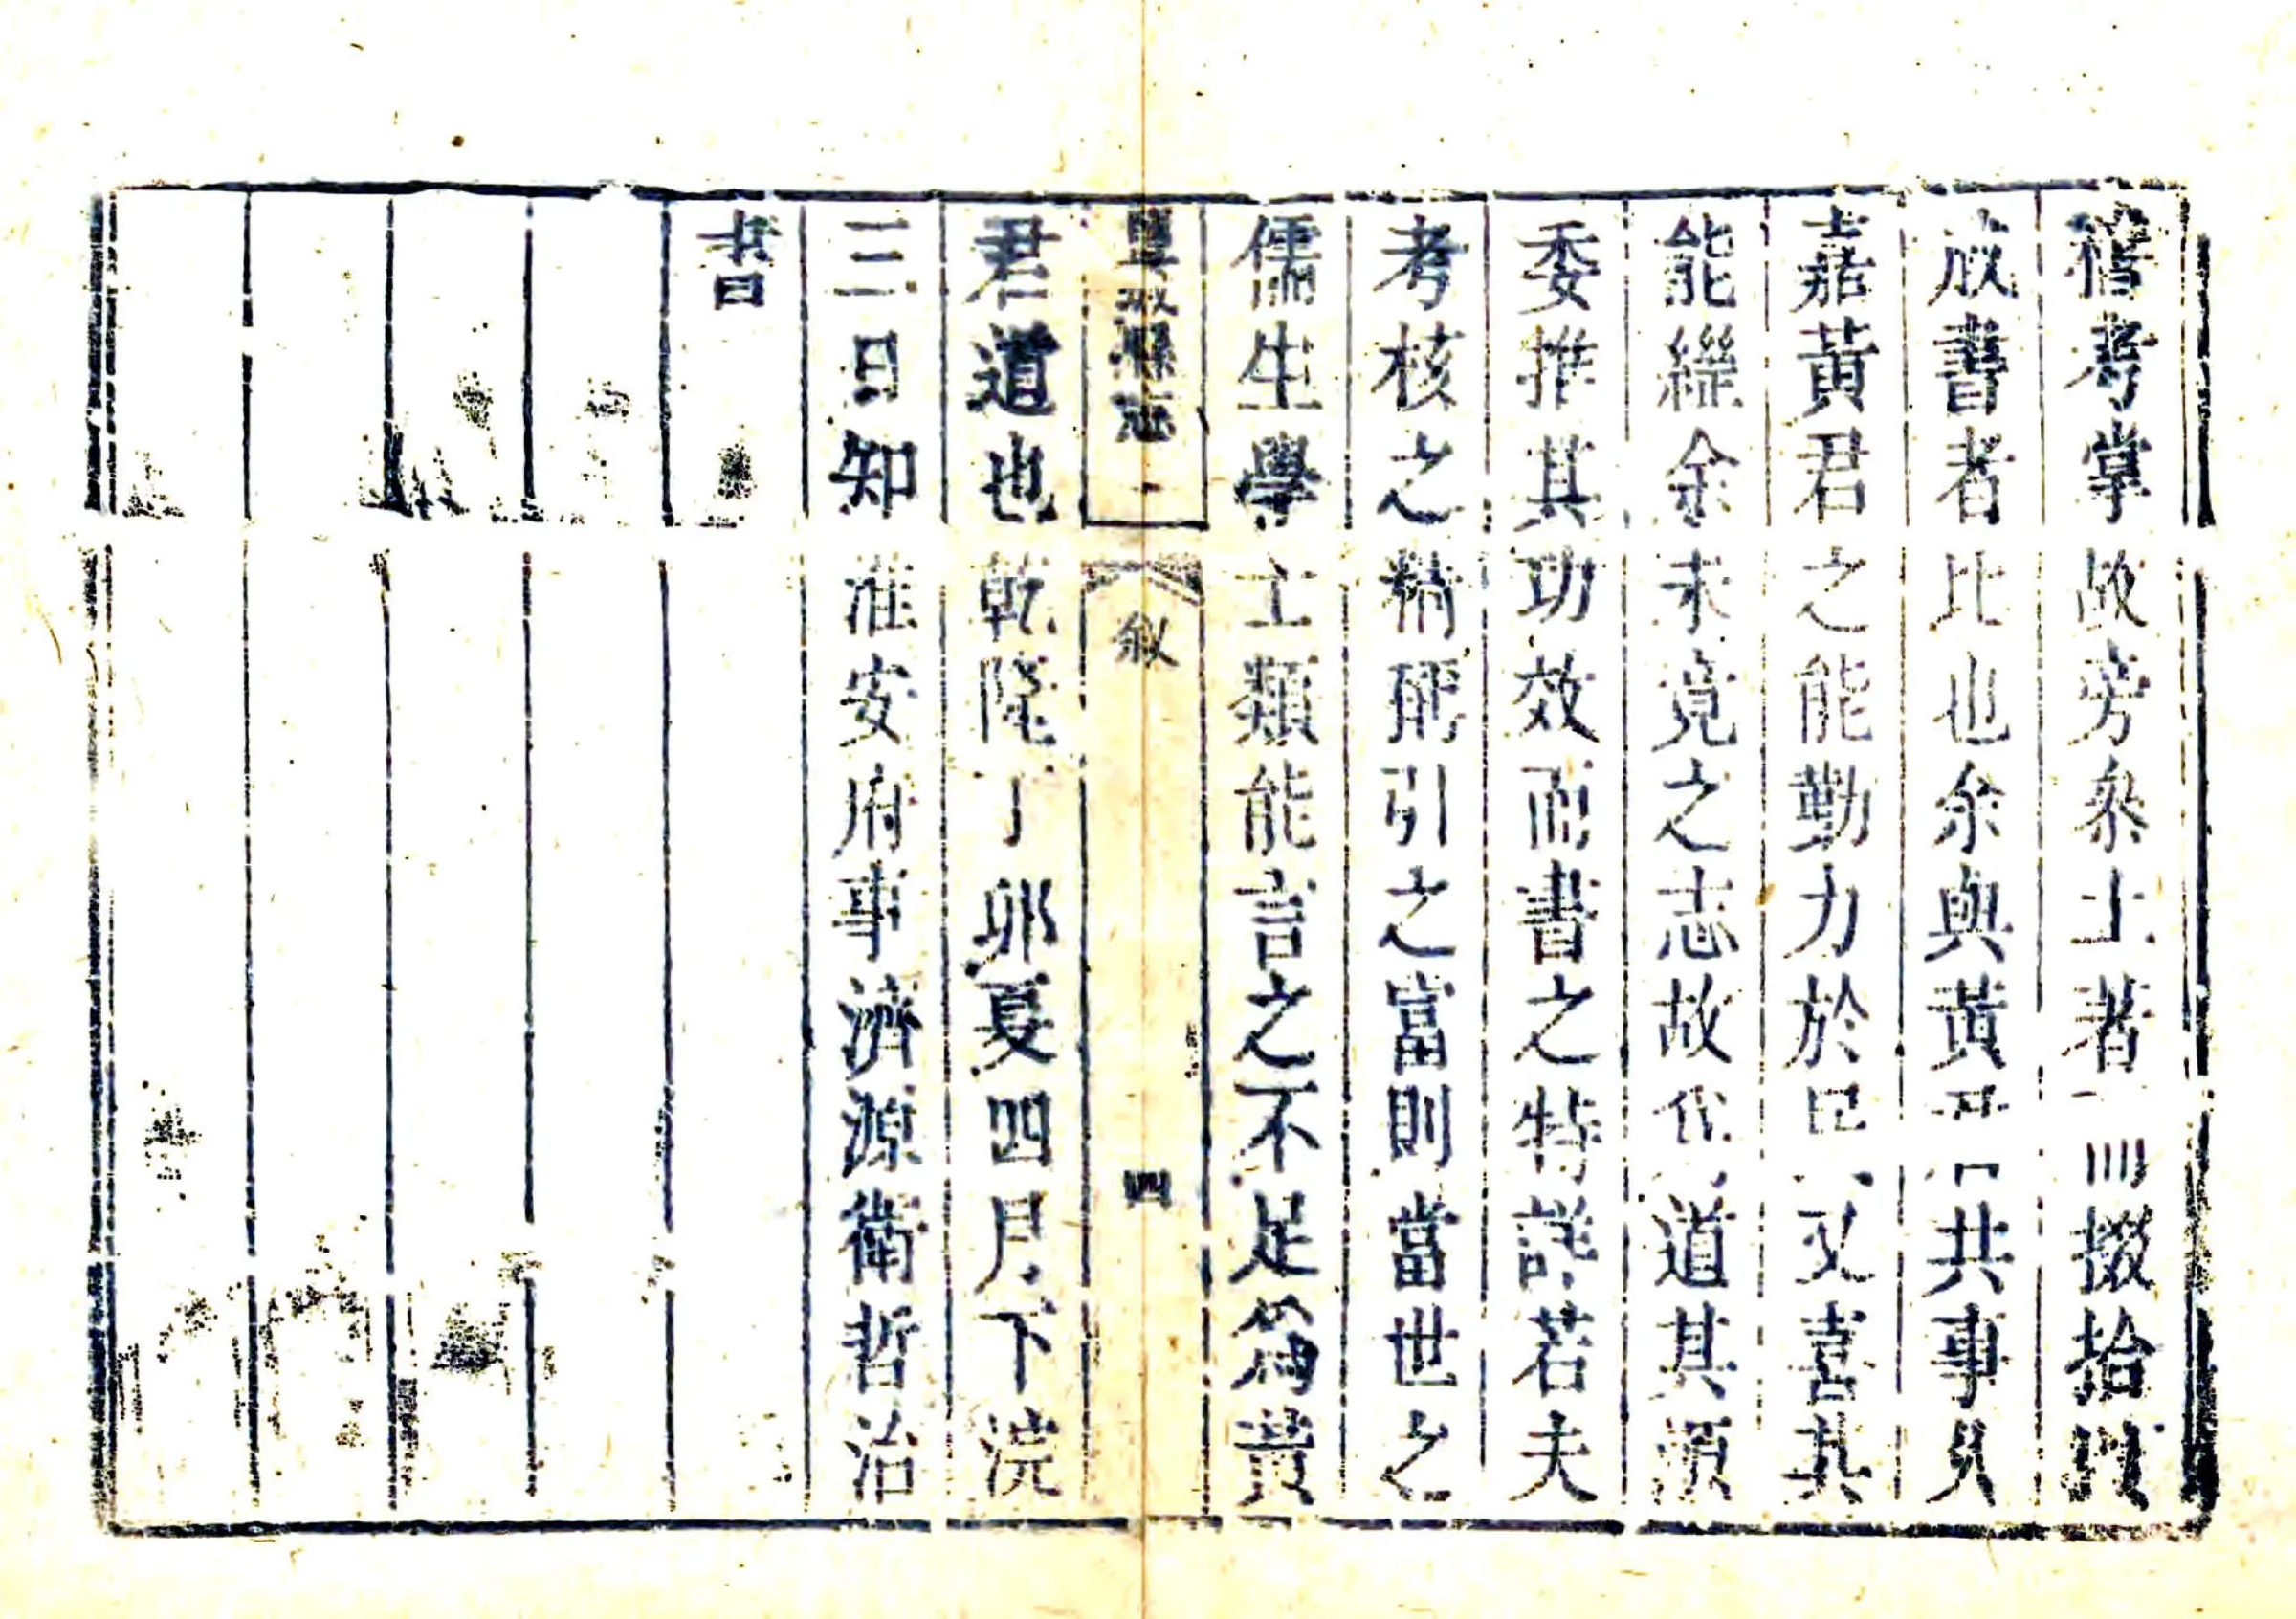 稽考掌故旁叅土著一 掇拾以
成書者比也余與黃君 共事見
嘉黃君之能勤力於民 又喜其
能繼余未竟之志故代道其
委推其功效而書之特詳若夫
考核之精 引之富則當世之
儒生學士類能言之不足爲黃
鹽城縣志 一 叙 四
君道也乾隆丁卯夏四月下浣
三日知淮安府事濟源衛哲治
書